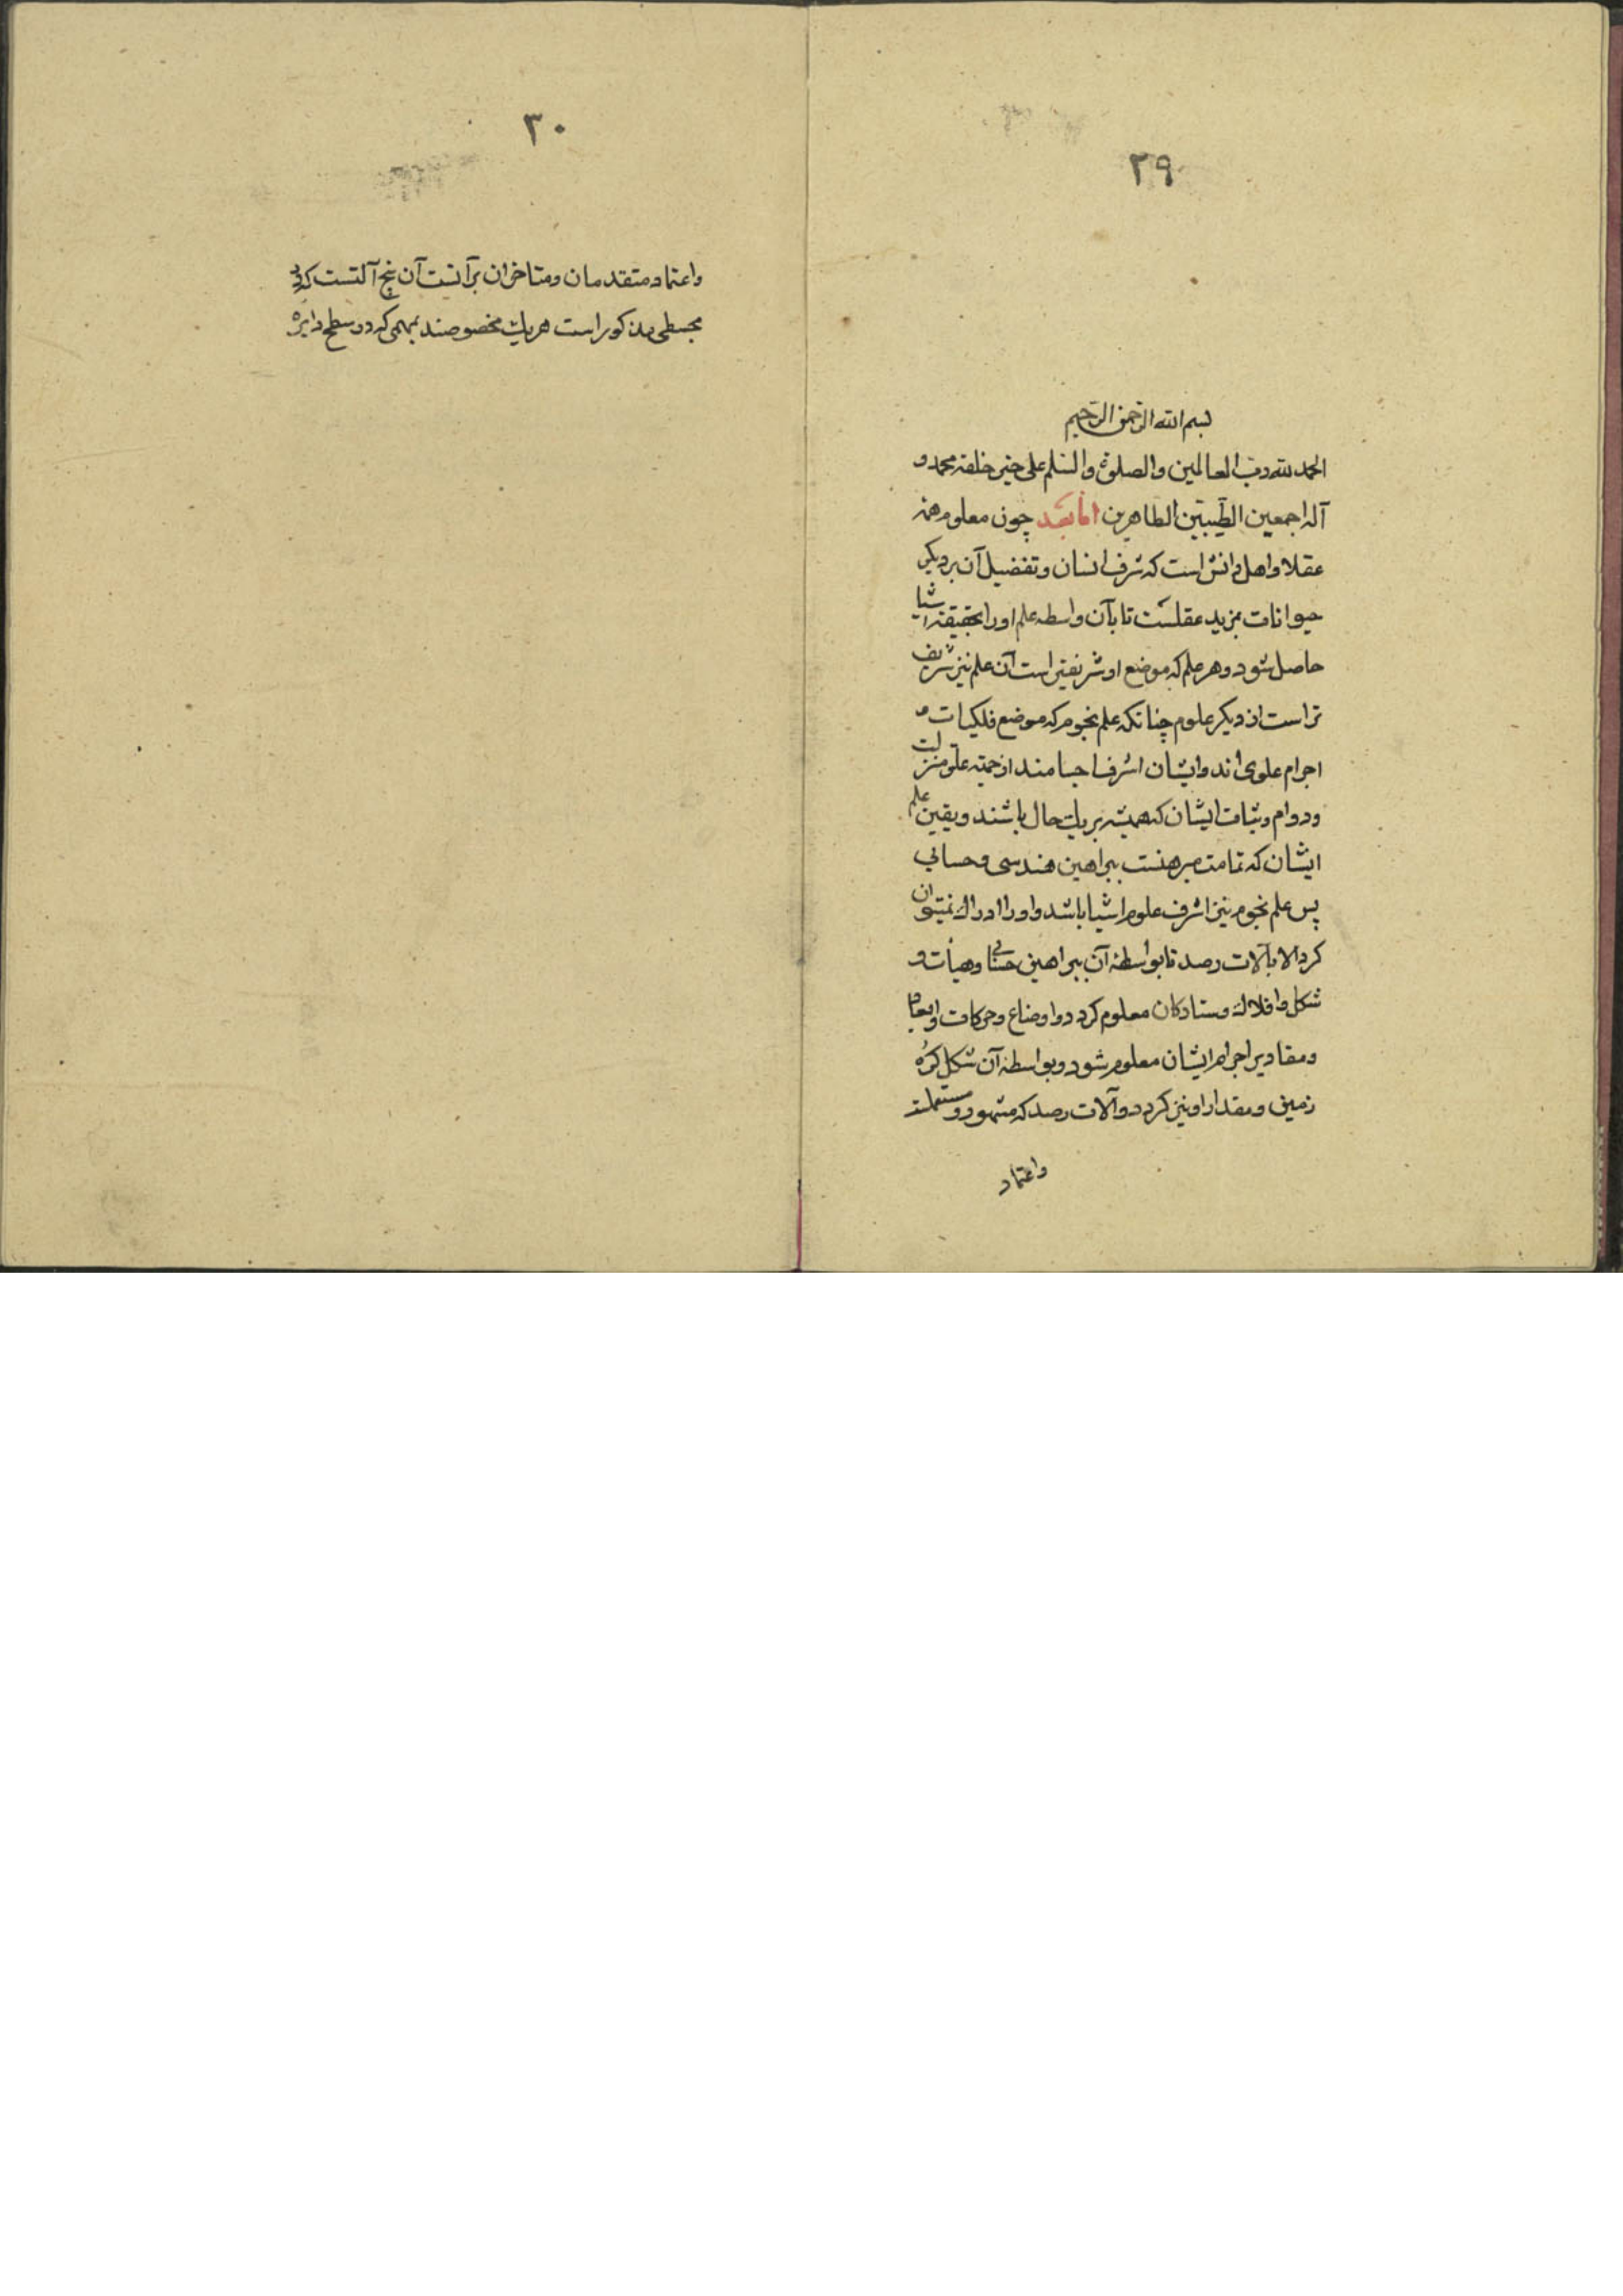 ۲۹
بسم الله الرحمن الرحیم
الحمد لله رب العالمین والصلوة والسلم علی خیر خلقه محمد و
آله اجمعین الطیبین الطاهرین اما بعد چون معلوم همه
عقلا و اهل دانش است که شرف انسان و تفضیل آن بر دیکر
حیوانات بمزید عقلست تا بآن واسطه علم او را بحقیقه اشیا
حاصل شود و هر علم که موضع او شریفتر است آن علم نیز شریف
تر است از دیکر علوم چنانکه علم نجوم که موضع فلکیات و
اجرام علوی اند و ایشان اشرف اجسامند از جهته علو منزلت
و دوام و ثبات ایشان که همیشه بریك حال باشند و یقین علم
ایشان که تمامت مبرهنست ببراهین هندسی و حسابی
پس علم نجوم نیز اشرف علوم اشیا باشد و او را ادراك نمیتوان
کرد الا بآلات رصد تا بواسطهٔ آن ببراهین حسابی و هیأت و
شکل افلاك و ستارکان معلوم کردد و اوضاع و حرکات و ابعاد
و مقادیر اجرام ایشان معلوم شود و بواسطهٔ آن شکل کرُه
زمین و مقدار او نیز کردد و آلات رصد که مشهور و مستعملند
واعتماد
۳۰
واعتماد متقدمان و متاخران بر آنست آن پنج آلتست که در
مجسطی مذکور است هریك مخصوصند بمهمی که در سطح دایرهٔ